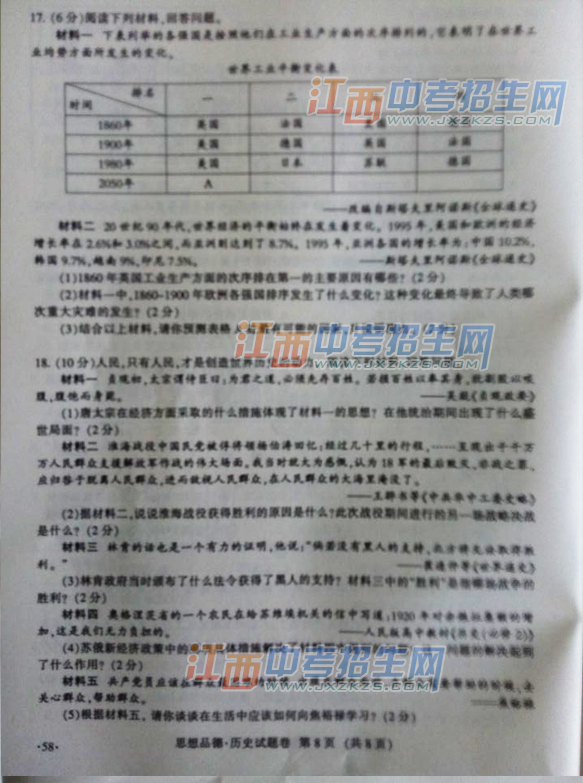 17. (6分) 阅读下列材料，回答问题。
材料一 下表列举的各强国是按照他们在工业生产方面的次序排列的，它表明了在世界工
业均势方面所发生的变化。
世界工业平衡变化表
排名
时间
一 二
江西中考招生网
WWW.JXZKZS.COM
1860年 英国 法国
1900年 美国 德国 英国 法国
1980年 美国 日本 苏联 德国
2050年 A
——改编自斯塔夫里阿诺斯《全球通史》
材料二 20世纪90年代，世界经济的平衡始终在发生着变化。1995年，美国和欧洲的经济
增长率在2.6%和3.0%之间，而亚洲则达到了8.7%。1995年，亚洲各国的增长率为：中国10.2%，
韩国9.7%，越南9%，印尼7.5%。 ——斯塔夫里阿诺斯《全球通史》
(1)1860年英国工业生产方面的次序排在第一的主要原因有哪些？(2分)
(2)材料一中，1860-1900年欧洲各强国排序发生了什么变化？这种变化最终导致了人类哪
次重大灾难的发生？(2分)
(3)结合以上材料，请你预测表格A处最有可能的国家，
江西中考招生网
WWW.JXZKZS.COM
18. (10分)人民，只有人民，才是创造世界历史
材料一 贞观初，太宗谓侍臣曰：为君之道，必须先存百姓。若损百姓以奉其身，犹割股以啖
腹，腹饱而身毙。 ——吴兢《贞观政要》
(1)唐太宗在经济方面采取的什么措施体现了材料一的思想？在他统治期间出现了什么盛
世局面？(2分)
材料二 淮海战役中国民党被俘将领杨伯涛回忆：经过几十里的行程，……呈现出千千万
万人民群众支援解放军作战的伟大场面。我当时就大为感慨，认为18军的最后败灭，非战之罪，
应归咎于脱离人民群众，进而敌视人民群众，在人民群众的大海里淹没了。
——王辅书等《中共华中工委史略》
(2)据材料二，说说淮海战役获得胜利的原因是什么？此次战役期间进行的另一场战略决战
是什么？(2分)
材料三 林肯的话也是一个有力的证明，他说："倘若没有黑人的支持，北方将无法取得胜
利。" ——崔连仲等《世界通史》
(3)林肯政府当时颁布了什么法令获得了黑人的支持？材料三中的"胜利"是指哪场战争的
胜利？(2分)
材料四 奥格涅茨省的一个农民在给苏维埃机关的信中写道：1920年对余粮征集额的增
加，这是我们无力负担的。 ——人民版高中教材《历史(必修2)》
(4)苏俄新经济政策中的 具体措施解决了
江西中考招生网
WWW.JXZKZS.COM
问题的解决起到
了什么作用？(2分)
材料五 共产党员应该在群众最困难的时候，出现在群众
关心群众，帮助群众。 ——焦裕禄
(5)根据材料五，请你谈谈在生活中应该如何向焦裕禄学习？(2分)
·58· 思想品德·历史试题卷 第8页 (共8页)